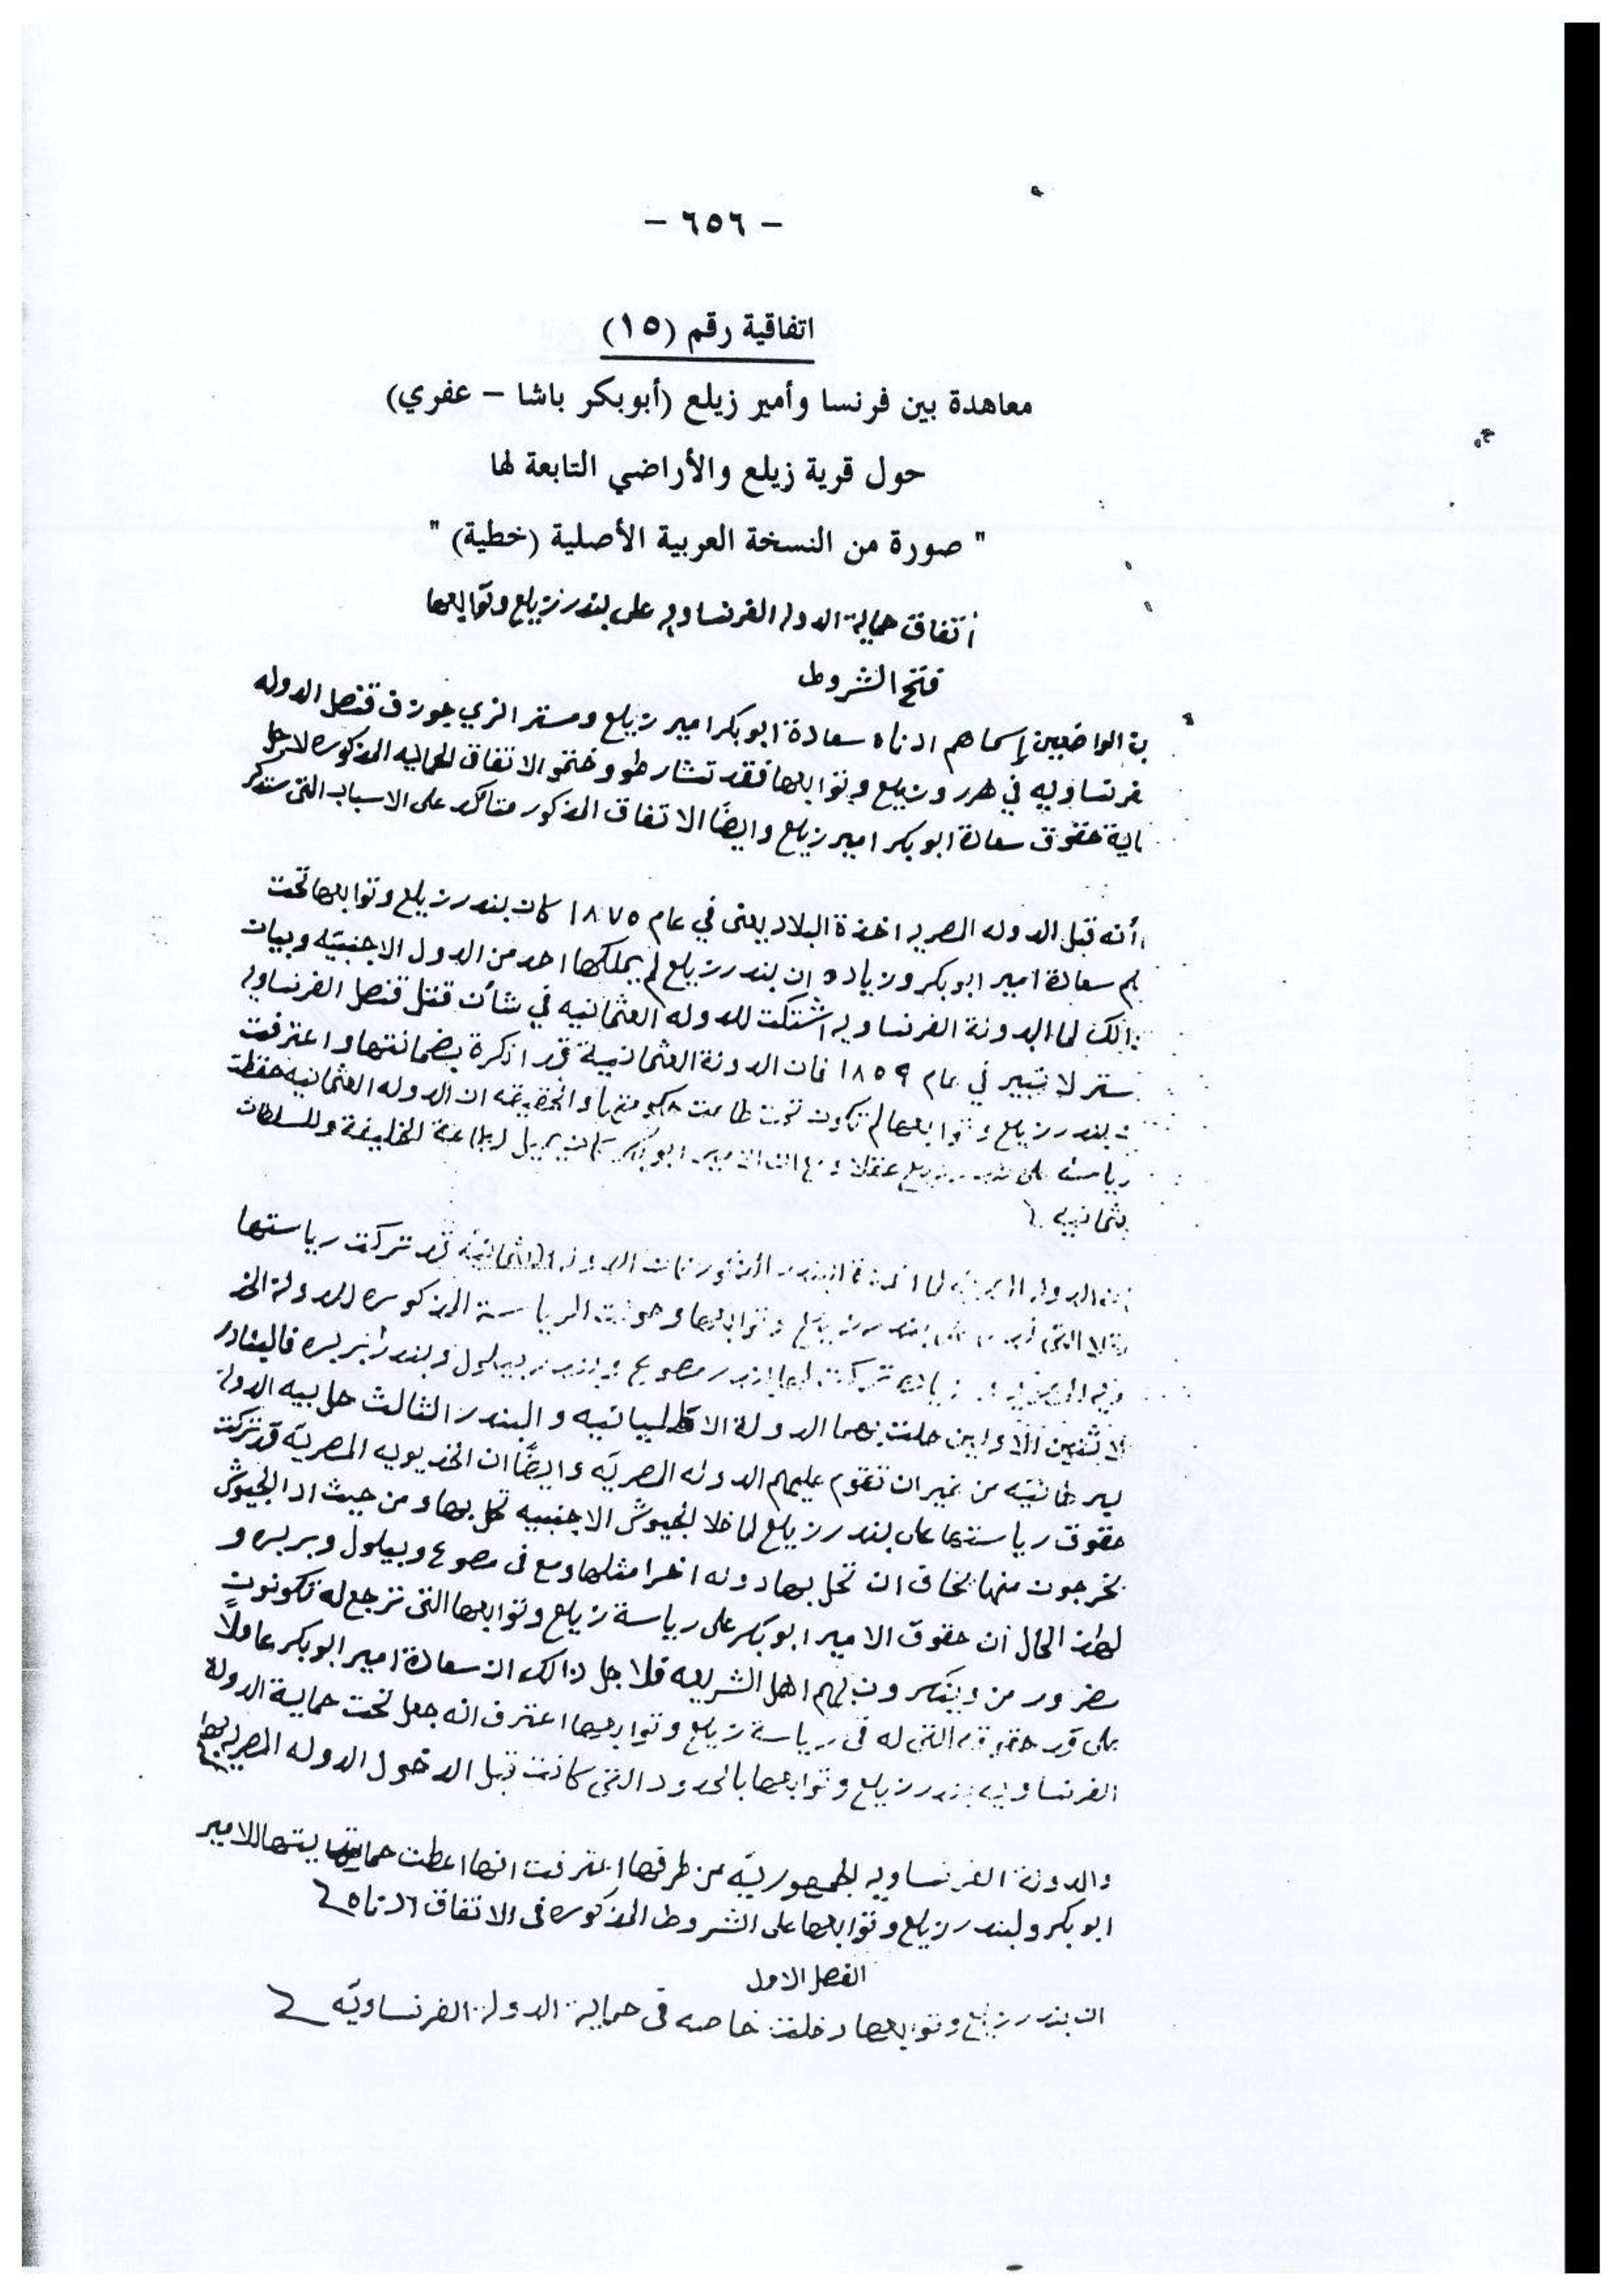 - ٦٥٦ -
اتفاقية رقم (١٥)
معاهدة بين فرنسا وأمير زيلع (أبوبكر باشا - عفري)
حول قرية زيلع والأراضي التابعة لها
" صورة من النسخة العربية الأصلية (خطية) "
اتفاق حماية الدوله الفرنساويه على بندر زيلع وتوابعها
فتح الشروط
بن الواضعين إسماهم ادناه سعادة ابوبكر امير زيلع ومستر انري جوزف قنصل الدوله
فرنساويه في هرر وزيلع وتوابعها فقد تشارطو وختمو الاتفاق الحمايه المذكوره لاجل
ماية حقوق سعادة ابوبكر امير زيلع وايضًا الاتفاق المذكور متأكد على الاسباب التى ستذكر
أنه قبل الدوله المصريه اخذة البلاد يعنى في عام ١٨٧٥ كان بندر زيلع وتوابعها تحت
كم سعادة امير ابوبكر وزياده ان بندر زيلع لم يملكها احد من الدول الاجنبيّه وبيان
ذالك لما الدولة الفرنساويه اشتكت للدوله العثمانيه في شأن قتل قنصل الفرنساويه
ستر لانبير في عام ١٨٥٩ فان الدولة العثمانيية قد انكرة بضمانتها واعترفت
ن بندر زيلع وتوابعها لم تكون تحت طاعت حكومتها والحقيقه ان الدوله العثمانيه حفظت
رياسة على بندر زيلع عقلا الامير ابوبكر كان يميل لطاعة الخليفة وللسلطان
عثمانيه
الدوله المصريه لما اخذة البندر المذكور فان الدوله العثمانيّه قد تركت رياستها
التى على بندر زيلع وتوابعها وحولت الرياسة المذكوره للدولة الخد
ويه المصريه وزياده تركت لها بندر مصوع وبندر بيلول وبندر بربره فالبنادر
الاثنين الأوابين حلت بهما الدولة الاطليانيه والبندر الثالث حل بيه الدولة
لبرطانيّه من غير ان تقوم عليهم الدوله المصريّه وايضًا ان الخديويه المصريّه قد تركت
حقوق رياستها على بندر زيلع لما خلا الجيوش الاجنبيه تحل بها ومن حيث اذ الجيوش
يخرجون منها يخاف ان تحل بها دوله اخرا مثلها ومع فى مصوع وبيلول وبربره و
لهذ الحال أن حقوق الامير ابوبكر على رياسة زيلع وتوابعها التى ترجع له تكونون
مضرور من وينكرون بهم اهل الشريعه فلاجل ذالك ان سعادة امير ابوبكر عاملاً
على قدر حقوقه التى له فى رياسة زيلع وتوابعها اعترف انه جعل تحت حماية الدولة
الفرنساويه بندر زيلع وتوابعها بالحدود التى كانت قبل الدخول الدوله المصريه بها
والدولة الفرنساويه الجمهوريّه من طرفها اعترفت انها اعطت حمايتها للامير
ابوبكر ولبندر زيلع وتوابعها على الشروط المذكوره فى الاتفاق ادناه
الفصل الاول
ان بندر زيلع وتوابعها دخلت خاصه فى حماية الدولة الفرنساويّه